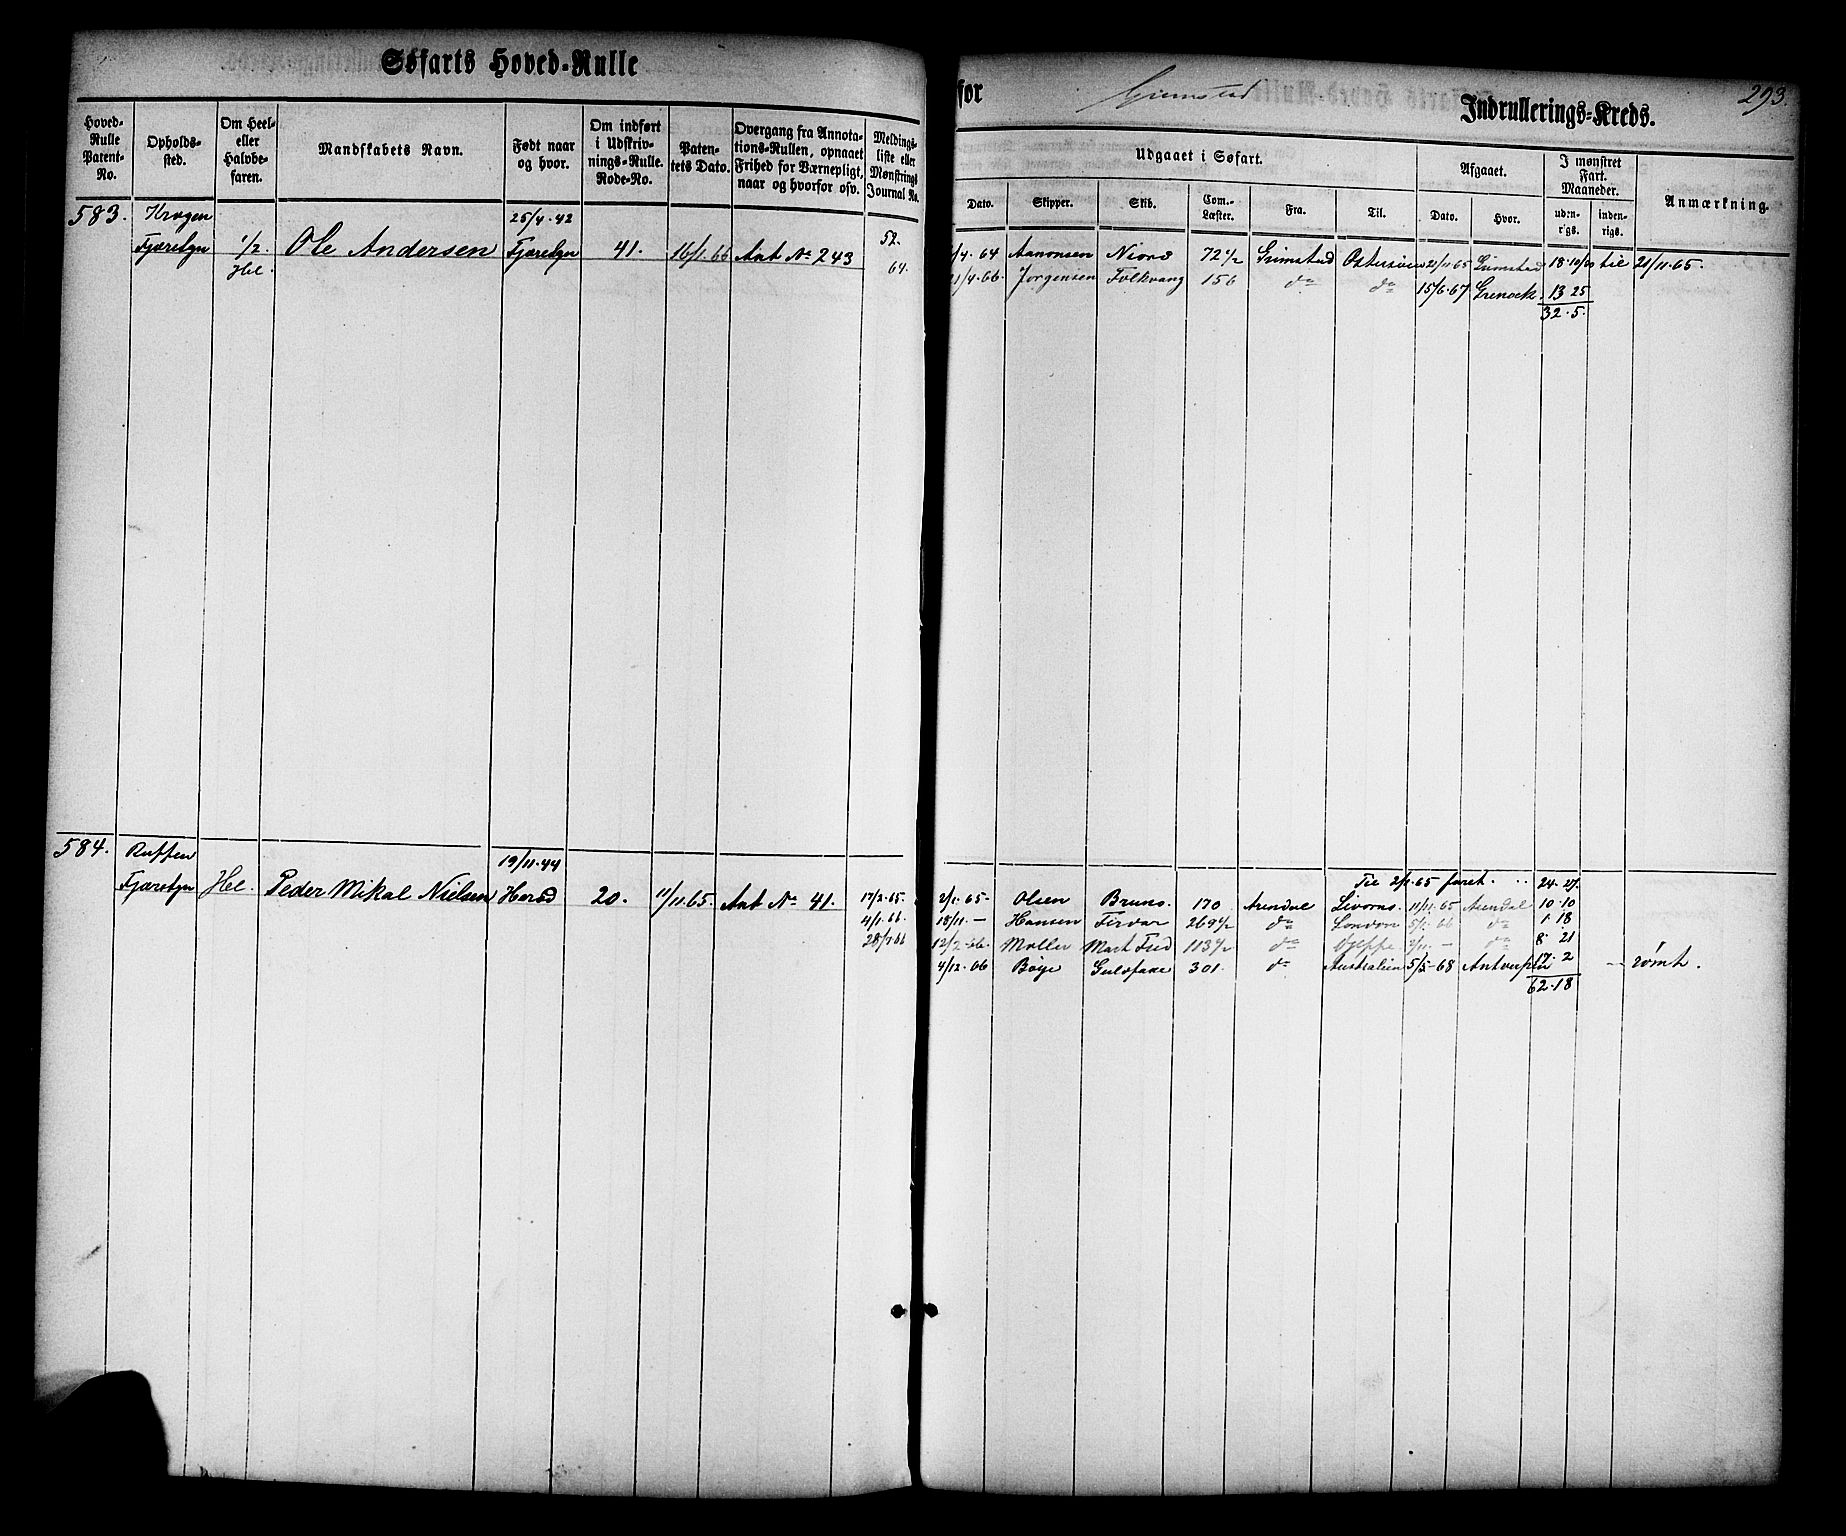 Søfarts Hoved-Rulle
for Grimstad Indrullerings-Kreds. 293.
Hoved-Rulle Patent-No.
Opholds-sted.
Om Heel- eller Halvbe-faren.
Mandskabets Navn.
Født naar og hvor.
Om indført i Udskriv-nings-Rulle. Rode-No.
Paten-tets Dato.
Overgang fra Annota-tions-Rullen, opnaaet Frihed for Værnepligt, naar og hvorfor osv.
Meldings-liste eller Mønstrings Journal No.
Udgaaet i Søfart.
Dato. Skipper. Skib. Com.-Læster. Fra. Til.
Afgaaet.
Dato. Hvor.
I mønstret Fart. Maaneder.
uden-rigs. inden-rigs.
Anmærkning.
583. Kragen 25/4.42
Fjæreby 1/2 Ole Andersen Fjæreby 41. 16/1.66 Ant No 243 52.
Hel. 64.
/4 64 Aanonsen Niord 72 1/2 Grimstad Østersøen 21/11 65 Grimstad 18.10/30 til 21/11.65.
/4.66 Jørgensen Folkvang 156 do do 15/6.67 Grenock. 13 25
32.5.
584. 19/11.44
Fjæreby Hel. Peder Mikal Nielsen 20. 11/11.65. Ant No 41. 17/2.65.
4/1.66.
Til 2/1.65 faret. 24.27.
2/1.65- Olsen Bruno. 170 Arendal Livorno. 11/11.65 Arendal 10.10
18/11.— Hansen 269 1/2 do London 5/1.66 do 1.18
12/2.66. Møller 113 1/2 do do 8 21
4/12.66 Bøye Guldfaxe 301. do Australien 5/5-68 Antwerpen 17.2 — rømt.
62.18